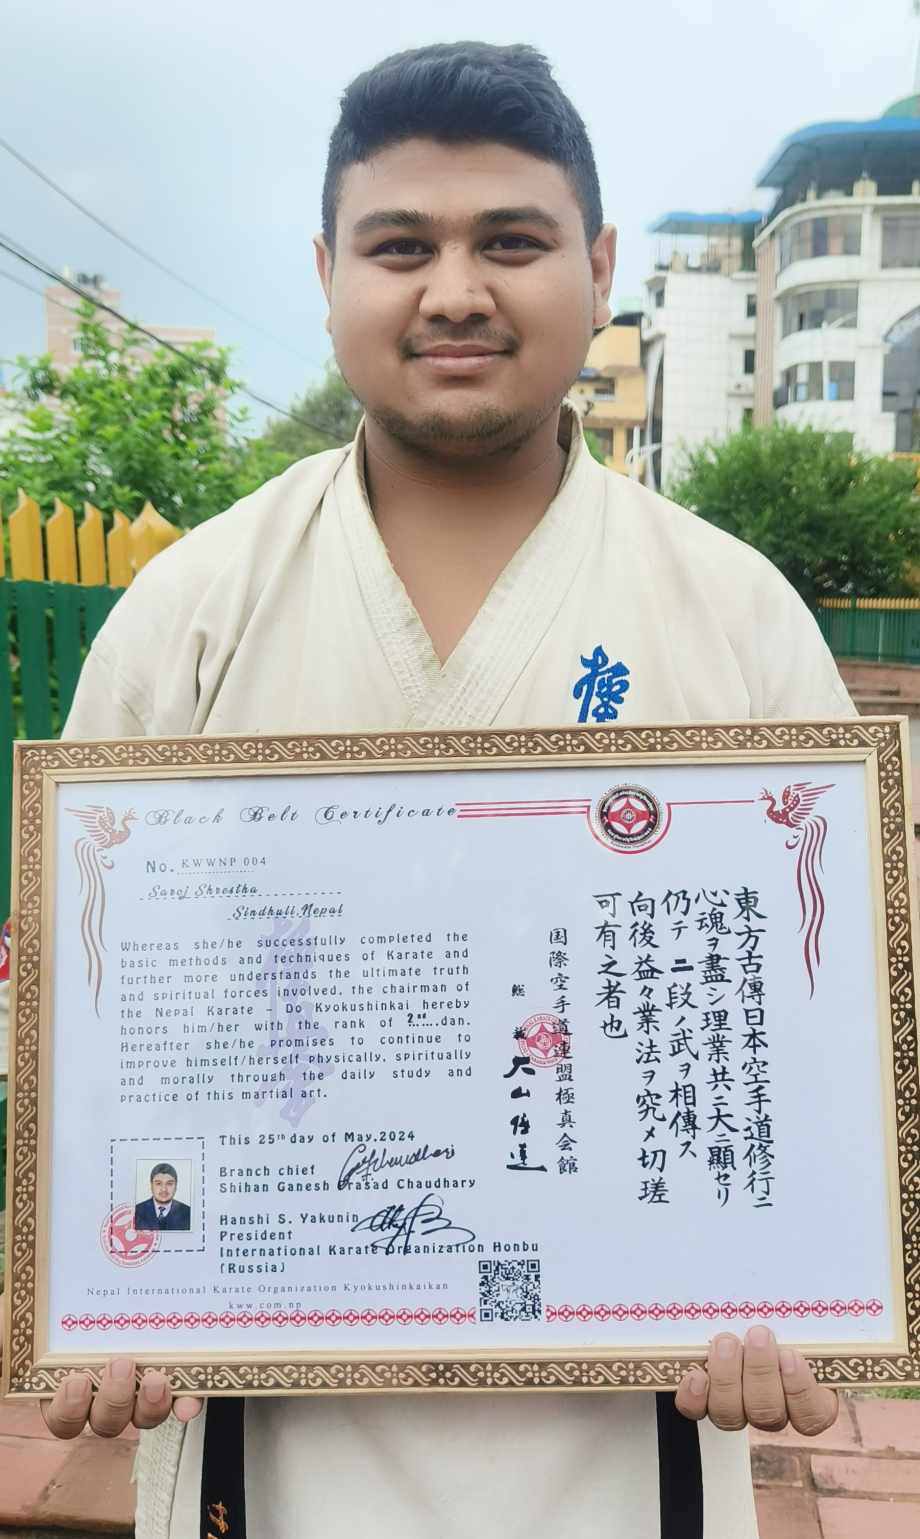 極
Black Belt Certificate
No. KWWNP 004
Saroj Shrestha
Sindhuli,Nepal
Whereas she/he successfully completed the
basic methods and techniques of Karate and
further more understands the ultimate truth
and spiritual forces involved, the chairman of
the Nepal Karate - Do Kyokushinkai hereby
honors him/her with the rank of 2nd dan.
Hereafter she/he promises to continue to
improve himself/herself physically, spiritually
and morally through the daily study and
practice of this martial art.
This 25th day of May,2024
Branch chief
Shihan Ganesh Prasad Chaudhary
Hanshi S. Yakunin
President
International Karate Organization Honbu
(Russia)
Nepal International Karate Organization Kyokushinkaikan
kww.com.np
東方古傳日本空手道修行ニ
心魂ヲ盡シ理業共ニ大ニ顯セリ
仍テ二段ノ武ヲ相傳ス
向後益々業法ヲ究メ切瑳
可有之者也
国際空手道連盟極真会館
大山倍達